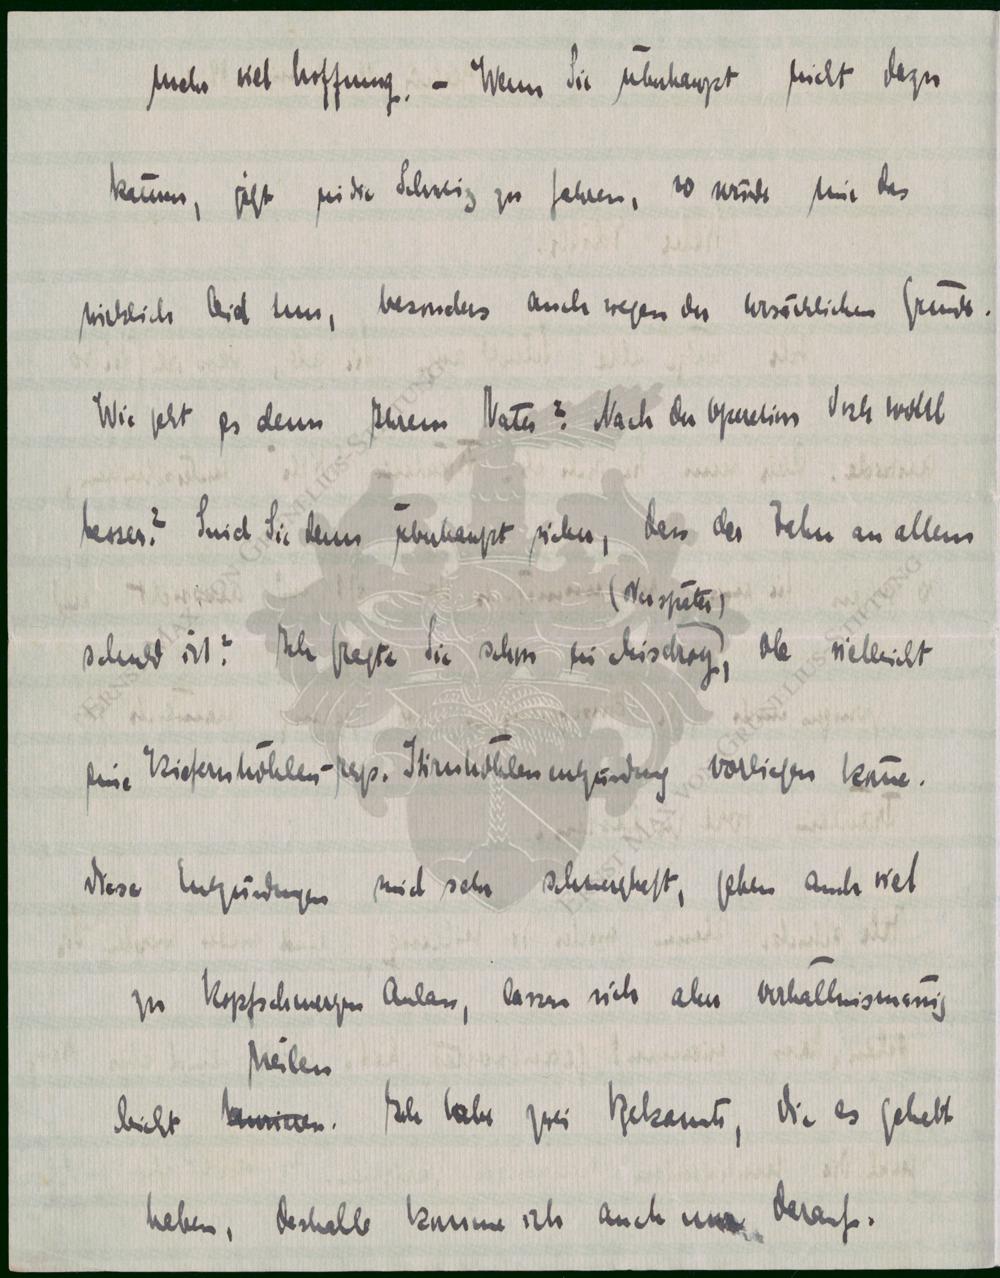 mehr viel Hoffnung. – Wenn Sie überhaupt nicht dazu
kämen, jetzt in die Schweiz zu fahren, so würde mir das
wirklich leid tun, besonders auch wegen der ursächlichen Gründe.
Wie geht es denn Ihrem Vater? Nach der Operation doch wohl
besser? Sind Sie denn überhaupt sicher, dass der Zahn an allem
(Neuspeter)
schuld ist? Ich fragte Sie schon in Misdroy, ob vielleicht
eine Kiefernhöhlen- resp. Stirnhöhlenentzündung vorliegen könne.
Diese Entzündungen sind sehr schmerzhaft, geben auch viel
zu Kopfschmerzen Anlass, lassen sich aber verhältnismässig
heilen
leicht. Ich habe zwei Bekannte, die es gehabt
haben, deshalb komme ich auch nur darauf.
ERNST MAX VON GRUNELIUS-STIFTUNG
ERNST MAX VON GRUNELIUS-STIFTUNG